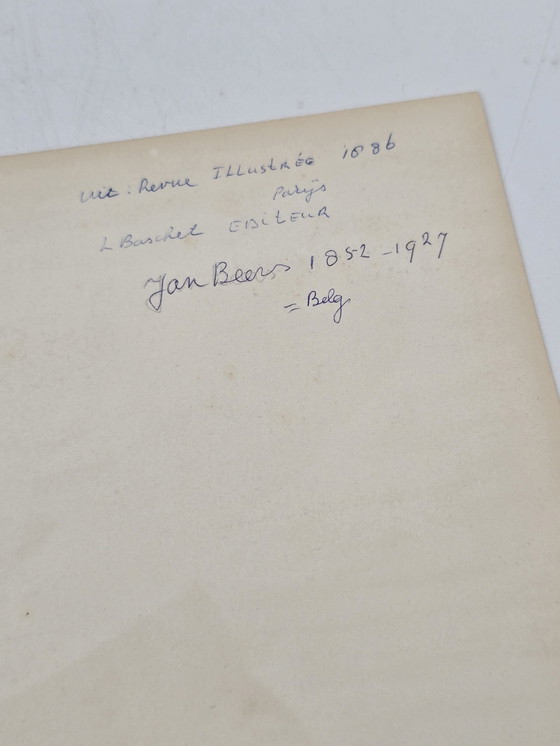 uit: Revue ILLustRée 1886
Parijs
L Baschet EDitEUR
Jan Beers 1852-1927
= Belg